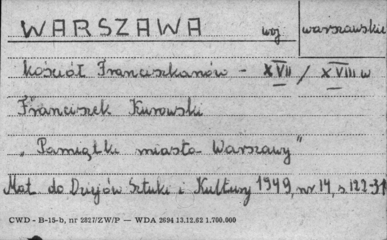 WARSZAWA woj warszawskie
Kościół Franciszkanów - XVII / XVIII w
Franciszek Kurowski
„Pamiątki miasta Warszawy”
Mat. do Dziejów Sztuki i Kultury 1949, nr 14, s 122-31
CWD - B-15-b, nr 2827/ZW/P — WDA 2694 13.12.62 1.700.000